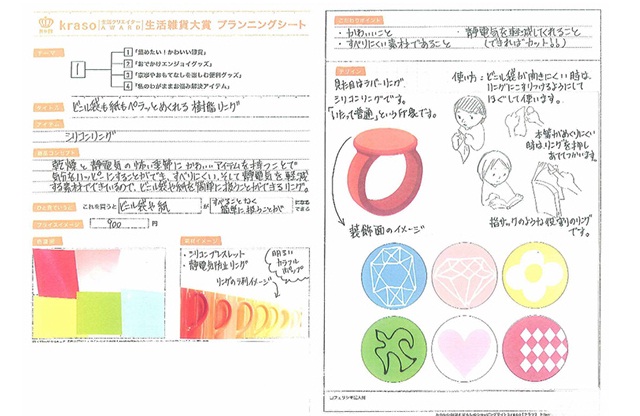 kraso 生活クリエイター AWARD 生活雑貨大賞 プランニングシート
テーマ
1
1 「温めたい!かわいい雑貨」
2 「おでかけエンジョイグッズ」
3
4 「私のわがままお悩み解決アイテム」
ビニル袋も紙もペラッとめくれる 樹脂リング
シリコンリング
乾燥と静電気の怖い季節にかわいいアイテムを持つことで
気分もハッピーにすることができ、すべりにくい、そして静電気を軽減
する素材でできているので、ビニル袋や紙を簡単に扱うことができるリング。
これを買うと ビニル袋や紙 が すべることなく 簡単に扱うことが になる
プライスイメージ 900 円
・シリコンブレスレット
・静電気防止リング
リングの材料イメージ
明るい
カラフル
ポップ
こだわりポイント
・かわいいこと ・静電気を軽減してくれること
・すべりにくい素材であること (できればカット!!)
デザイン
見た目はラバーリング
シリコンリングです。
「いたって普通」という印象です。
使い方:ビニル袋が開きにくい時は、
リングにこすりつけるようにして
ほぐして使います。
本等がめくりにくい
時はリングを押し
あてて使います。
指サックのような役割のリング
です。
装飾面のイメージ